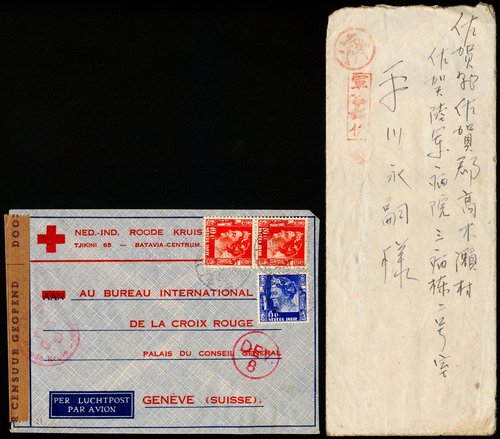 NED.-IND. ROODE KRUIS
TJIKINI 65 — BATAVIA-CENTRUM.
AAN
AU BUREAU INTERNATIONAL
DE LA CROIX ROUGE
PALAIS DU CONSEIL GÉNÉRAL
GENÈVE (SUISSE).
PER LUCHTPOST
PAR AVION
R CENSUUR GEOPEND DOO
DEI
8
佐賀縣佐賀郡高木瀬村
佐賀陸軍病院三病棟二号室
平川永嗣様
軍事郵便